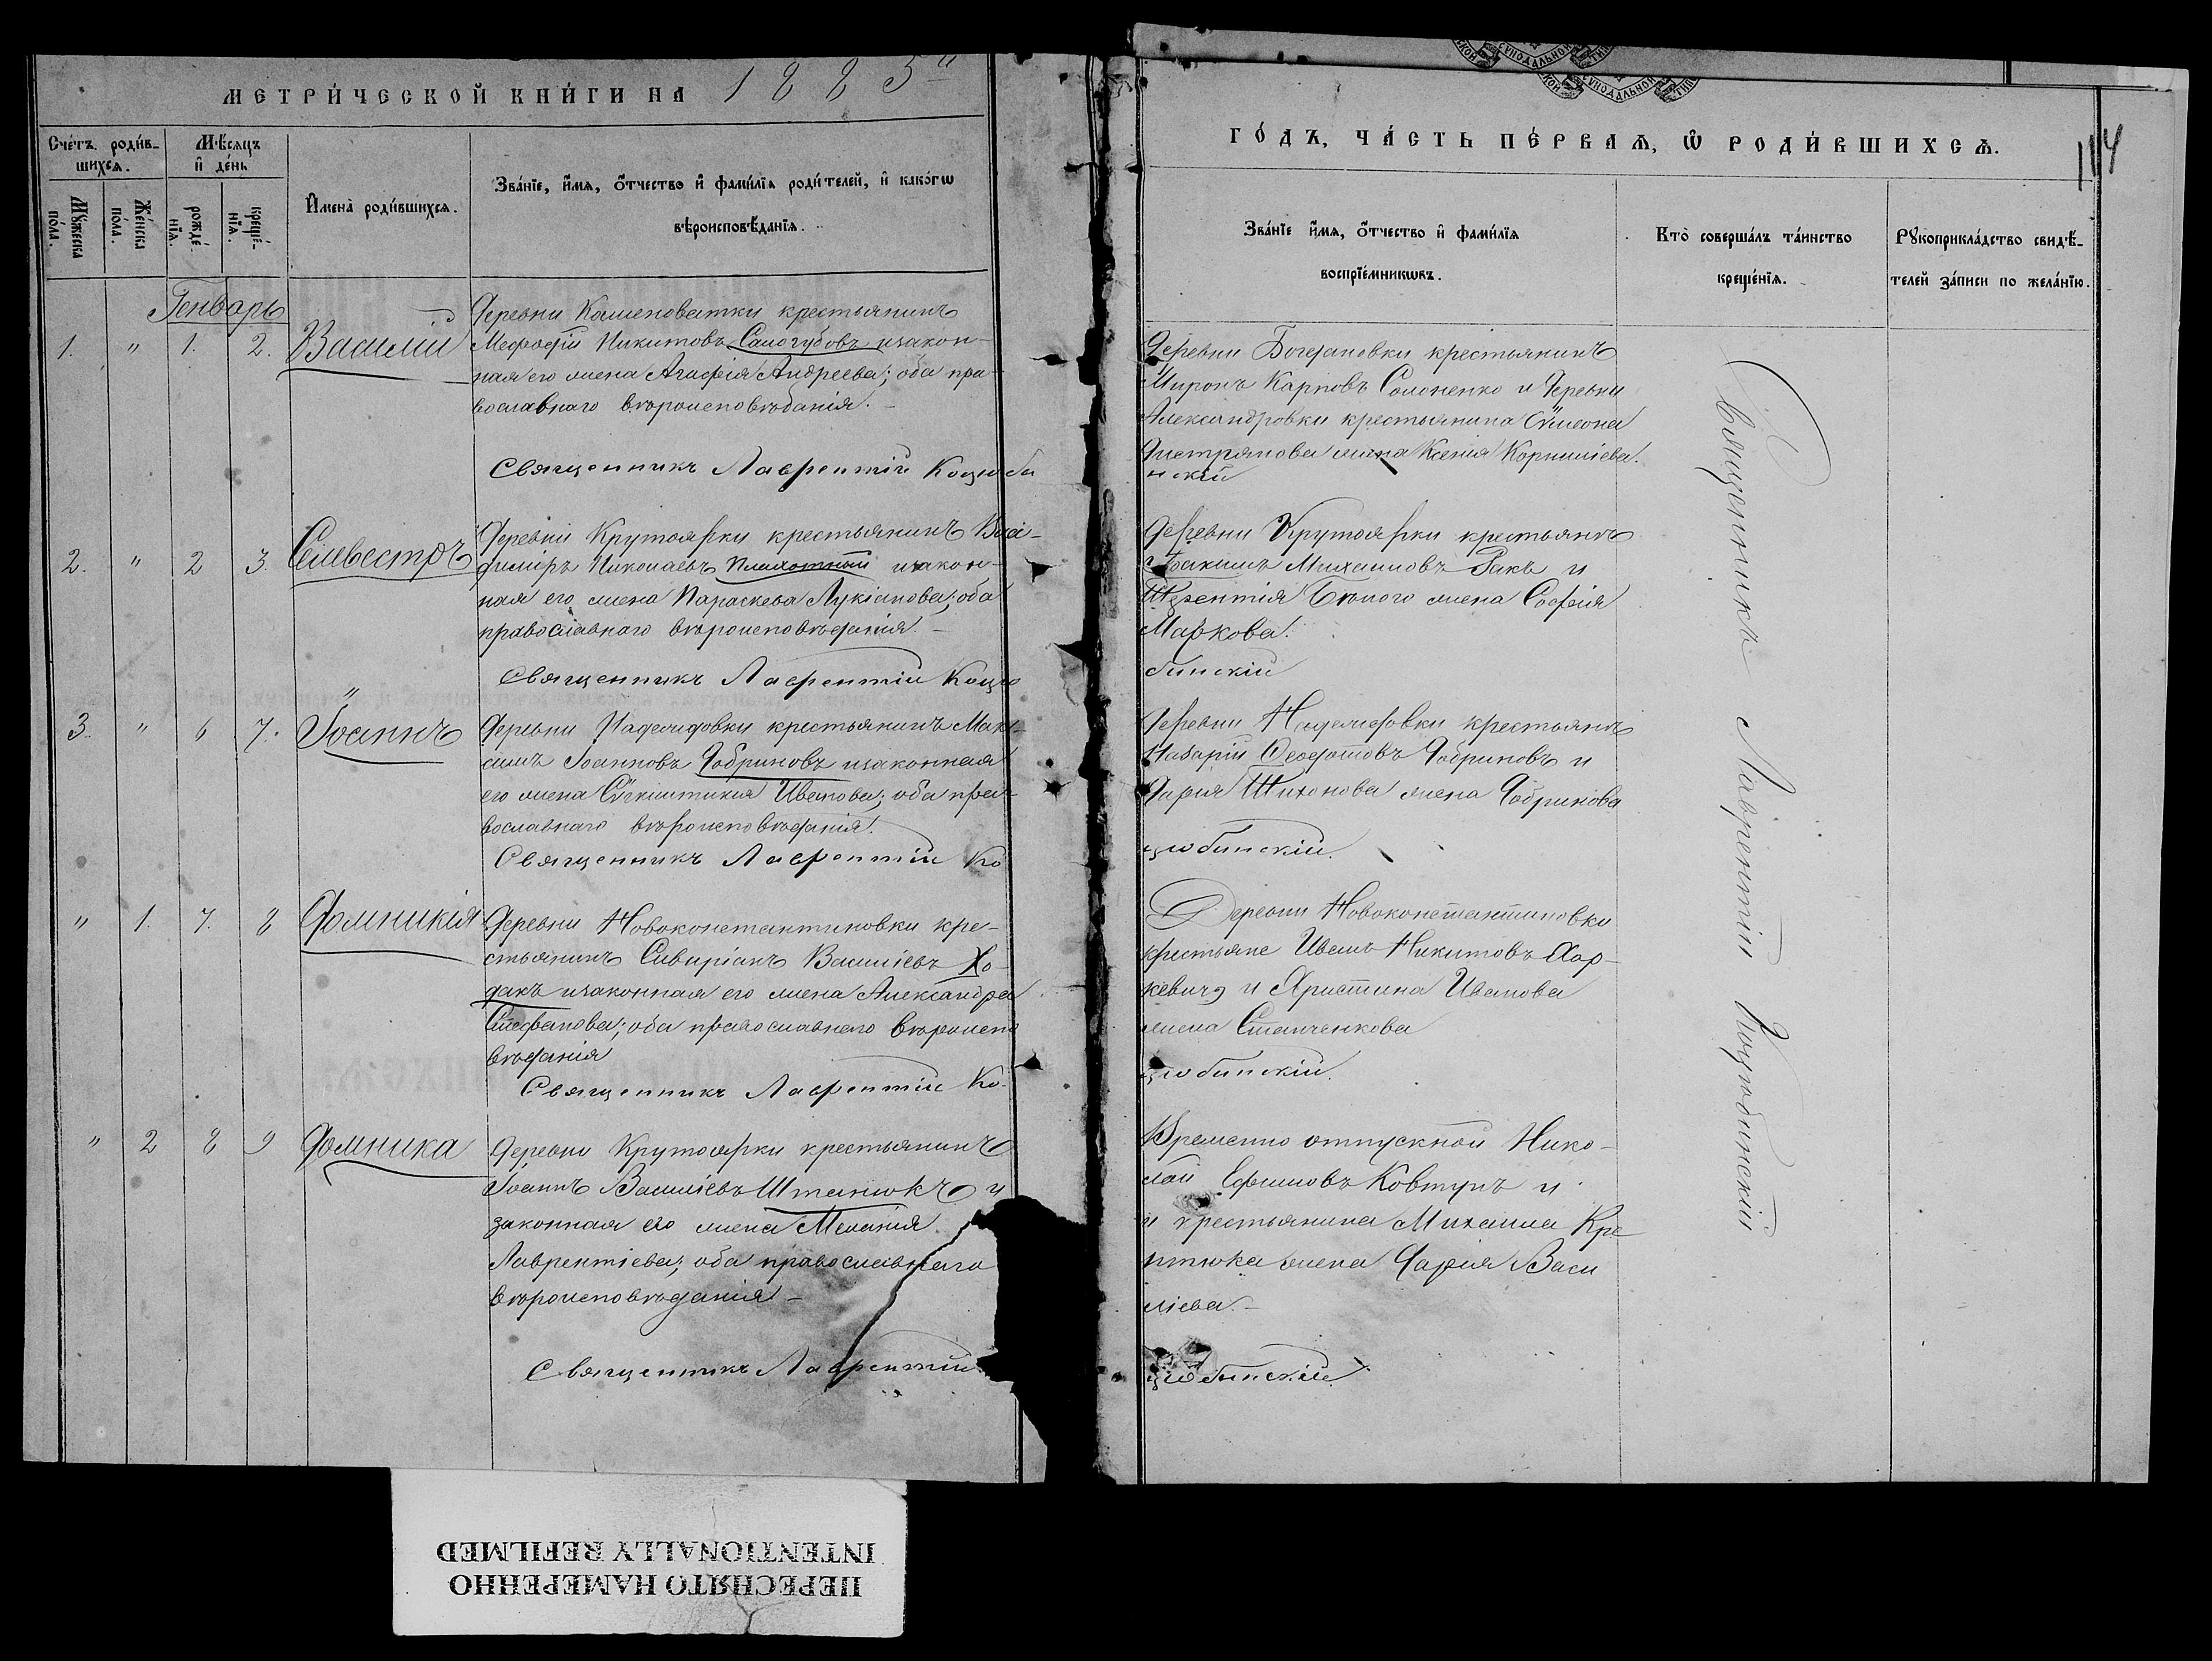 МЕТРИ́ЧЕСКОЙ КНИ́ГИ НА 1885
ГО́ДЪ, ЧА́СТЬ ПЕ́РВАѦ, Ѡ РОДИ́ВШИХСѦ.
114
Сче́тъ роди́в-
шихсѧ.
Мꙋ́жеска
по́ла.
Же́нска
по́ла.
Мѣ́сѧцъ
и де́нь
рожде́-
нїѧ.
креще́-
нїѧ.
И҆мена̀ роди́вшихсѧ.
Зва́нїе, и҆́мѧ, ѻ҆́тчество и҆ фами́лїѧ роди́телей, и҆ како́гѡ
вѣроисповѣ́данїѧ.
Зва́нїе и҆́мѧ, ѻ҆́тчество и҆ фами́лїѧ
воспрїе́мникѡвъ.
Кто̀ соверша́лъ та́инство
креще́нїѧ.
Рꙋкоприкла́дство свидѣ́-
телей за́писи по жела́нїю.
Генварь
1. " 1. 2. Василій
Деревни Каменоватки крестьянинъ
Мефодій Никитовъ Самогубовъ и закон-
ная его жена Агафія Андреева; оба пра-
вославнаго вѣроисповѣданія.
Священникъ Лаврентій Коцюби
Деревни Богдановки крестьянинъ
Миронъ Карповъ Соломенко и деревни
Александровки крестьянина Сѵмеона
жена Ксенія Корниліева.
нскій
2. " 2 3. Силвестръ
Деревни Крутоярки крестьянинъ Вла-
диміръ Николаевъ Плахотный и закон-
ная его жена Параскева Лукіанова; оба
православнаго вѣроисповѣданія.
Священникъ Лаврентій Коцю
Деревни Крутоярки крестьянъ
Іоакимъ Михаиловъ Ракъ и
Терентія Бѣлого жена Софія
Маркова.
бинскій
3. " 6 7. Іоаннъ
Деревни Надеждовки крестьянинъ Мак-
симъ Іоанновъ Добриновъ и законная
его жена Сѵнклитикія Иванова; оба пра-
вославнаго вѣроисповѣданія.
Священникъ Лаврентій Ко
Деревни Надеждовки крестьянъ
Назарій Ѳеодотовъ Добриновъ и
Дарія Тихонова жена Добринова
цюбинскій.
" 1. 7. 8 Домникія
Деревни Новоконстантиновки кре-
стьянинъ Сивиріанъ Василіевъ Хо-
дакъ и законная его жена Александра
Стефанова; оба православнаго вѣроиспо
вѣданія
Священникъ Лаврентій Ко-
Деревни Новоконстантиновки
крестьяне Иванъ Никитовъ Хар-
кевичъ и Христина Иванова
жена Станченкова
цюбинскій.
" 2 8 9 Домника
Деревни Крутоярки крестьянинъ
Іоаннъ Василіевъ Штанюкъ и
законная его жена Меланія
Лаврентіева; оба православнаго
вѣроисповѣданія
Священникъ Лаврентій
Временно отпускной Нико-
лай Ефимовъ Ковтунъ и
и крестьянина Михаила Кре
птюка жена Дарія Васи
ліева.
цюбинскій
Священникъ Лаврентій Коцюбинскій
ПЕРЕСНЯТО НАМЕРЕННО
INTENTIONALLY REFILMED